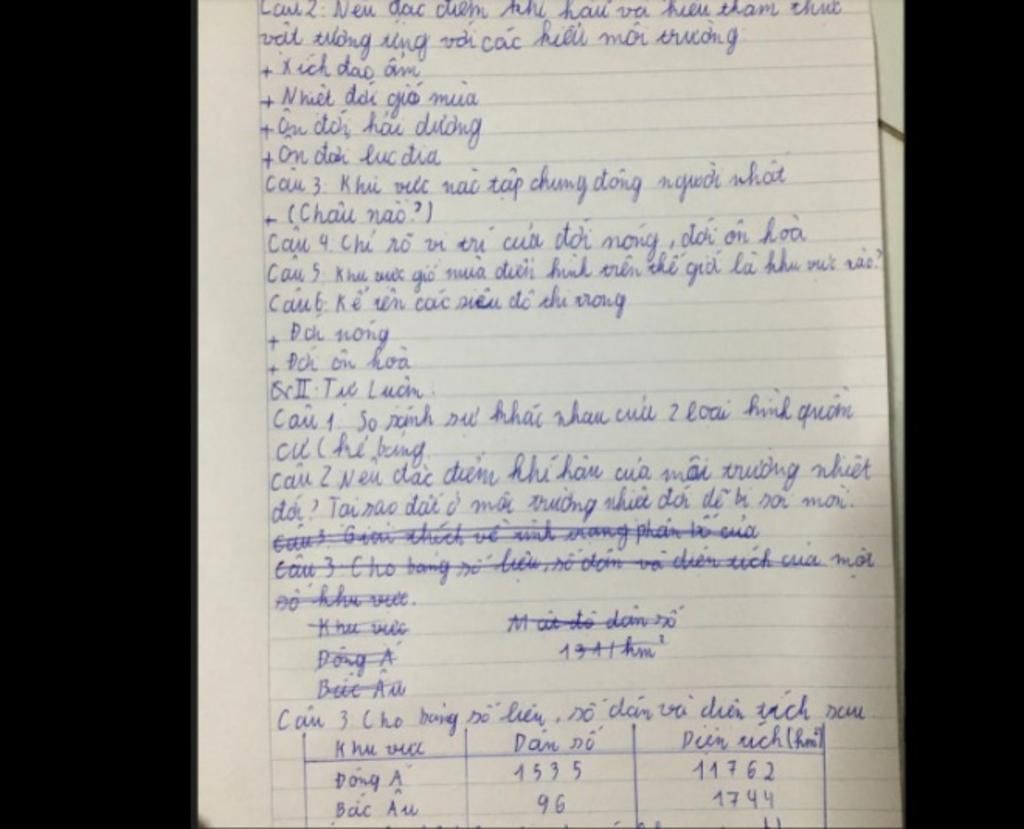 Câu 2: Nêu đặc điểm khí hậu và kiểu thảm thực
vật tương ứng với các kiểu môi trường
+ Xích đạo ẩm
+ Nhiệt đới gió mùa
+ Ôn đới hải dương
+ Ôn đới lục địa
Câu 3: Khu vực nào tập chung đông người nhất
- (Châu nào?)
Câu 4. Chỉ rõ vị trí của đới nóng, đới ôn hoà
Câu 5: Khu vực gió mùa điển hình trên thế giới là khu vực nào?
Câu 6: Kể tên các siêu đô thị trong
+ Đới nóng
+ Đới ôn hoà
II. Tự Luận.
Câu 1: So sánh sự khác nhau của 2 loại hình quần
cư (kẻ bảng
Câu 2 Nêu đặc điểm khí hậu của môi trường nhiệt
đới? Tại sao đất ở môi trường nhiệt đới dễ bị sói mòn.
Câu 3: Giải thích về tình trạng phân bố của
Câu 3: Cho bảng số liệu, số dân và diện tích của một
số khu vực.
Khu vực Mật độ dân số
Đông Á 131/km²
Bắc Âu
Câu 3. Cho bảng số liệu, số dân và diện tích sau
Khu vực Dân số Diện tích (km²)
Đông Á 1535 11762
Bắc Âu 96 1744